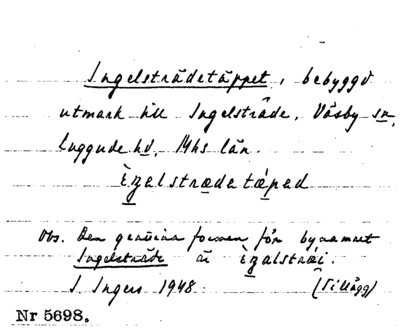 Ingelsträdetäppet, bebyggd
utmark till Ingelsträde, Väsby sn,
Luggude hd, Mhs län.
èzalstrædatǽpad
Obs. Den genuina formen för bynamnet
Ingelsträde är èzalstræi.
I. Ingers 1948. (Tillägg)
Nr 5698.